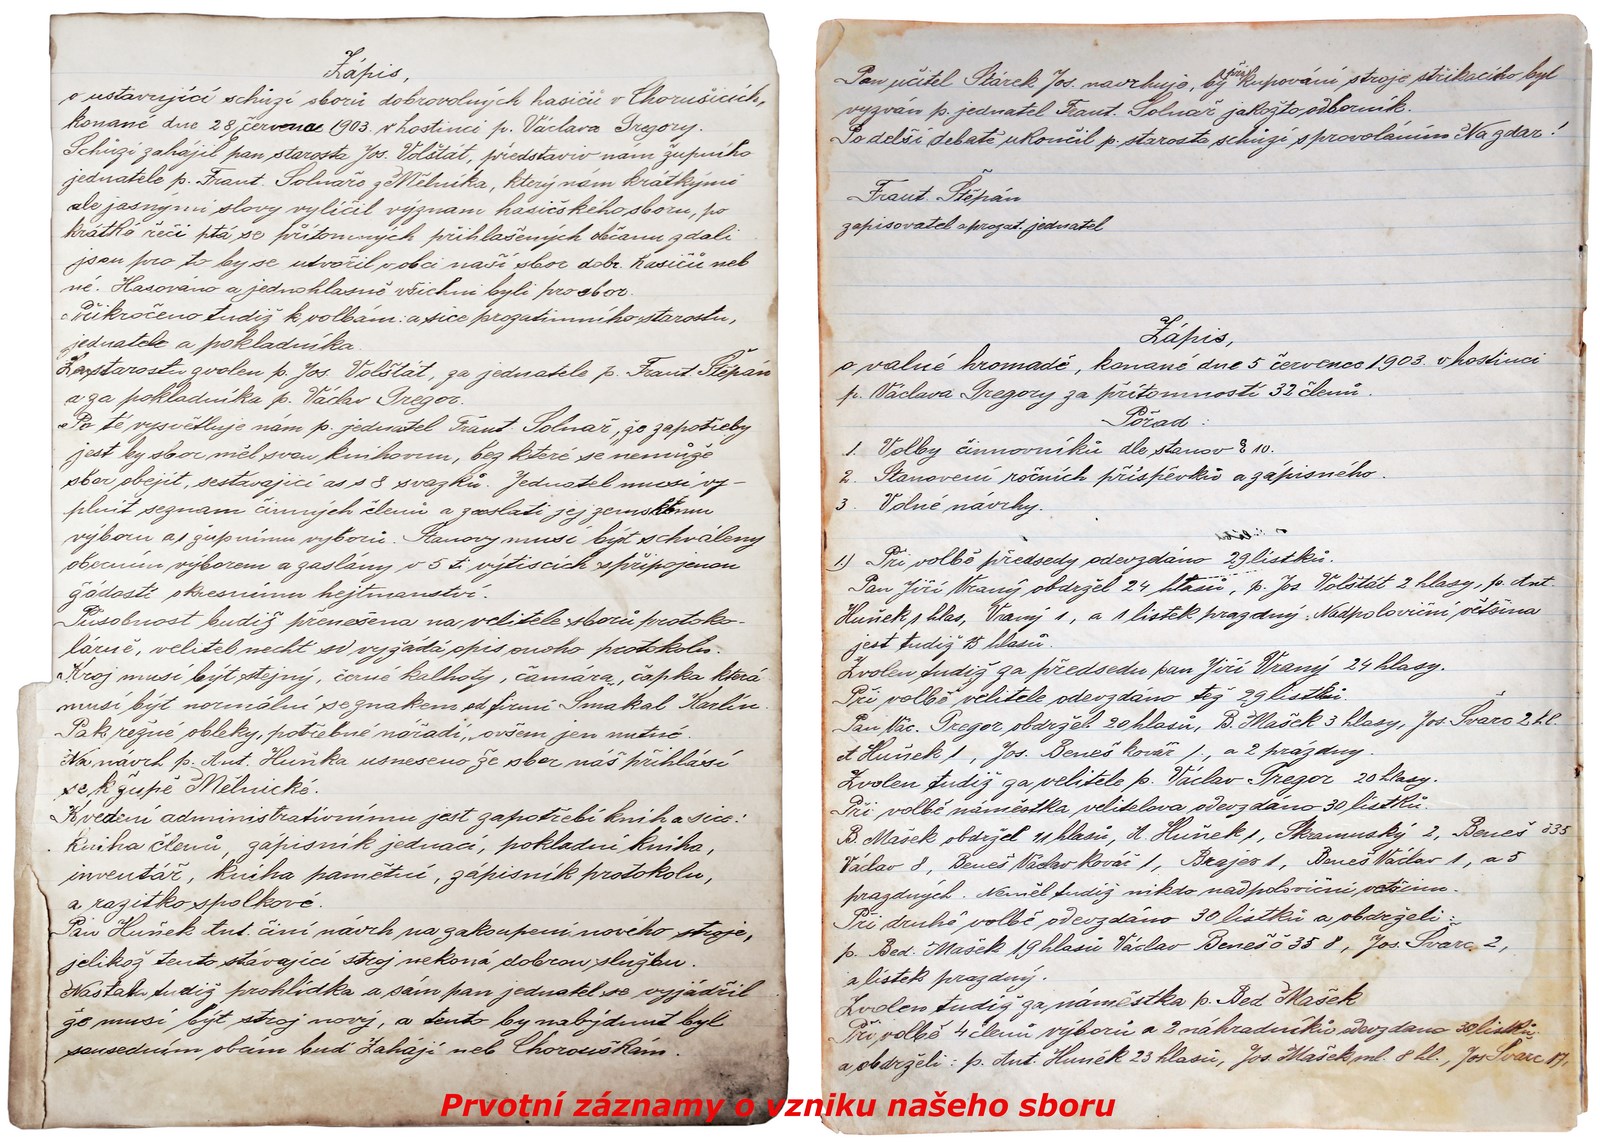 Zápis,
o ustavující schůzi sborů dobrovolných hasičů v Chorušicích,
konané dne 28 července 1903. v hostinci p. Václava Gregory.
Schůzi zahájil pan starosta Jos. Volštát, představiv nám župního
jednatele p. Frant. Solnaře z Mělníka, který nám krátkými
ale jasnými slovy vylíčil význam hasičského sboru, po
krátké řeči ptá se přítomných přihlášených občanu zdali
jsou pro to by se utvořil v obci naší sbor dobr. hasičů neb
né. Hlasováno a jednohlasně všichni byli pro sbor.
Přikročeno tudiž k volbám: a sice prozatimního starostu,
jednatele a pokladníka.
Za starostu zvolen p. Jos. Volštát, za jednatele p. Frant. Štěpán
a za pokladníka p. Václav Gregor.
Po té vysvětluje nám p. jednatel Frant. Solnař, že zapotřeby
jest by sbor měl svou knihovnu, bez které se nemůže
sbor obejít, sestávající as s 8 svazků. Jednatel musí vy-
plnit seznam činných členů a zaslati jej zemskému
výboru a župnímu výborů. Stanovy musí být schváleny
obecním výborem a zaslány v 5 ti výtiscích s připojenou
žádostí okresnímu hejtmanství.
Působnost budiž přenešena na velitele sborů protoko-
lárně, velitel necht si vyžádá opis onoho protokolu.
Kroj musí být stejný, černé kalhoty, čamára, čapka která
musí být normální se znakem od firmi Smakal Karlín.
Pak režné obleky, potřebné nářadí, ovšem jen nutné.
Na návrh p. Ant. Huňka usneseno že sbor náš přihlásí
se k župě Mělnické.
K vedení administrativnímu jest zapotřebí knih a sice:
kniha členů, zápisník jednací, pokladní kniha,
inventář, kniha pamětní, zápisník protokolu,
a razítko spolkové.
Pan Huňek Ant. činí návrh na zakoupení nového stroje,
jelikož tento stávající stroj nekoná dobrou službu.
Nastala tudiž prohlídka a sám pan jednatel se vyjádřil
že musí být stroj nový, a tento by nabýdnut byl
sousedním obcím buď Zahájí neb Chorouškám.
Pan učitel Stárek Jos. navrhuje, by při kupování stroje stříkacího byl
vyzván p. jednatel Frant. Solnař jakožto odborník.
Po delší debatě ukončil p. starosta schůzi s provoláním Na zdar!
Frant. Štěpán
zapisovatel a prozat. jednatel
Zápis,
o valné hromadě, konané dne 5 července 1903. v hostinci
p. Václava Gregory za přítomnosti 32 členů.
Pořad:
1. Volby činnovníků dle stanov § 10.
2. Stanovení ročních příspěvků a zápisného.
3. Volné návrhy.
1) Při volbě předsedy odevzdáno 29 lístků.
Pan Jiří Vraný obdržel 24 hlasů, p. Jos. Volštát 2 hlasy, p. Ant.
Huňek 1 hlas, Vraný 1, a 1 lístek prazdný. Nadpoloviční většina
jest tudiž 15 hlasů.
Zvolen tudiž za předsedu pan Jiří Vraný 24 hlasy.
Při volbě velitele odevzdáno též 29 lístků.
Pan Vác. Gregor obdržel 20 hlasů, B. Mašek 3 hlasy, Jos. Švarc 2 hl.
A Huňek 1, Jos. Beneš kovář 1, a 2 prazdny.
Zvolen tudiž za velitele p. Václav Gregor 20 hlasy.
Při volbě náměstka velitelova odevzdáno 30 lístků.
B. Mašek obdržel 11 hlasů, A. Huňek 1, Skramuský 2, Beneš č 35
Václav 8, Beneš Václav kovář 1, Brajer 1, Beneš Václav 1, a 5
prazdných. Neměl tudiž nikdo nadpoloviční většinu.
Při druhé volbě odevzdáno 30 lístků a obdrželi:
p. Bed. Mašek 19 hlasů Václav Beneš č 35 8, Jos. Švarc 2,
a lístek prazdný.
Zvolen tudiž za náměstka p. Bed Mašek
Při volbě 4 členů výborů a 2 náhradníků odevzdano 30 lístků
a obdrželi: p. Ant. Huněk 23 hlasů, Jos. Mašek ml. 8 hl., Jos Švarc 17,
Prvotní záznamy o vzniku našeho sboru